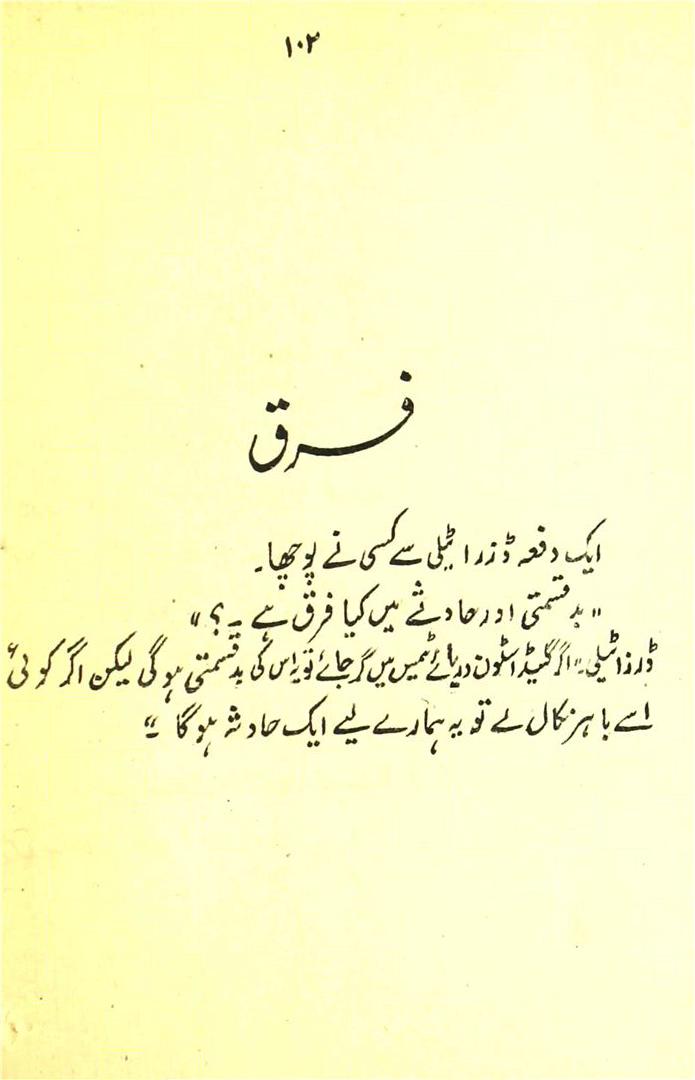 ۱۰۳
فرق
ایک دفعہ ڈزرائیلی سے کسی نے پوچھا۔
"بدقسمتی اور حادثے میں کیا فرق ہے۔؟"
ڈرزائیلی۔"اگر گلیڈاسٹون دریائے ٹیمس میں گر جائے تو یہ اس کی بدقسمتی ہوگی لیکن اگر کوئی
اسے باہر نکال لے تو یہ ہمارے لیے ایک حادثہ ہوگا۔"